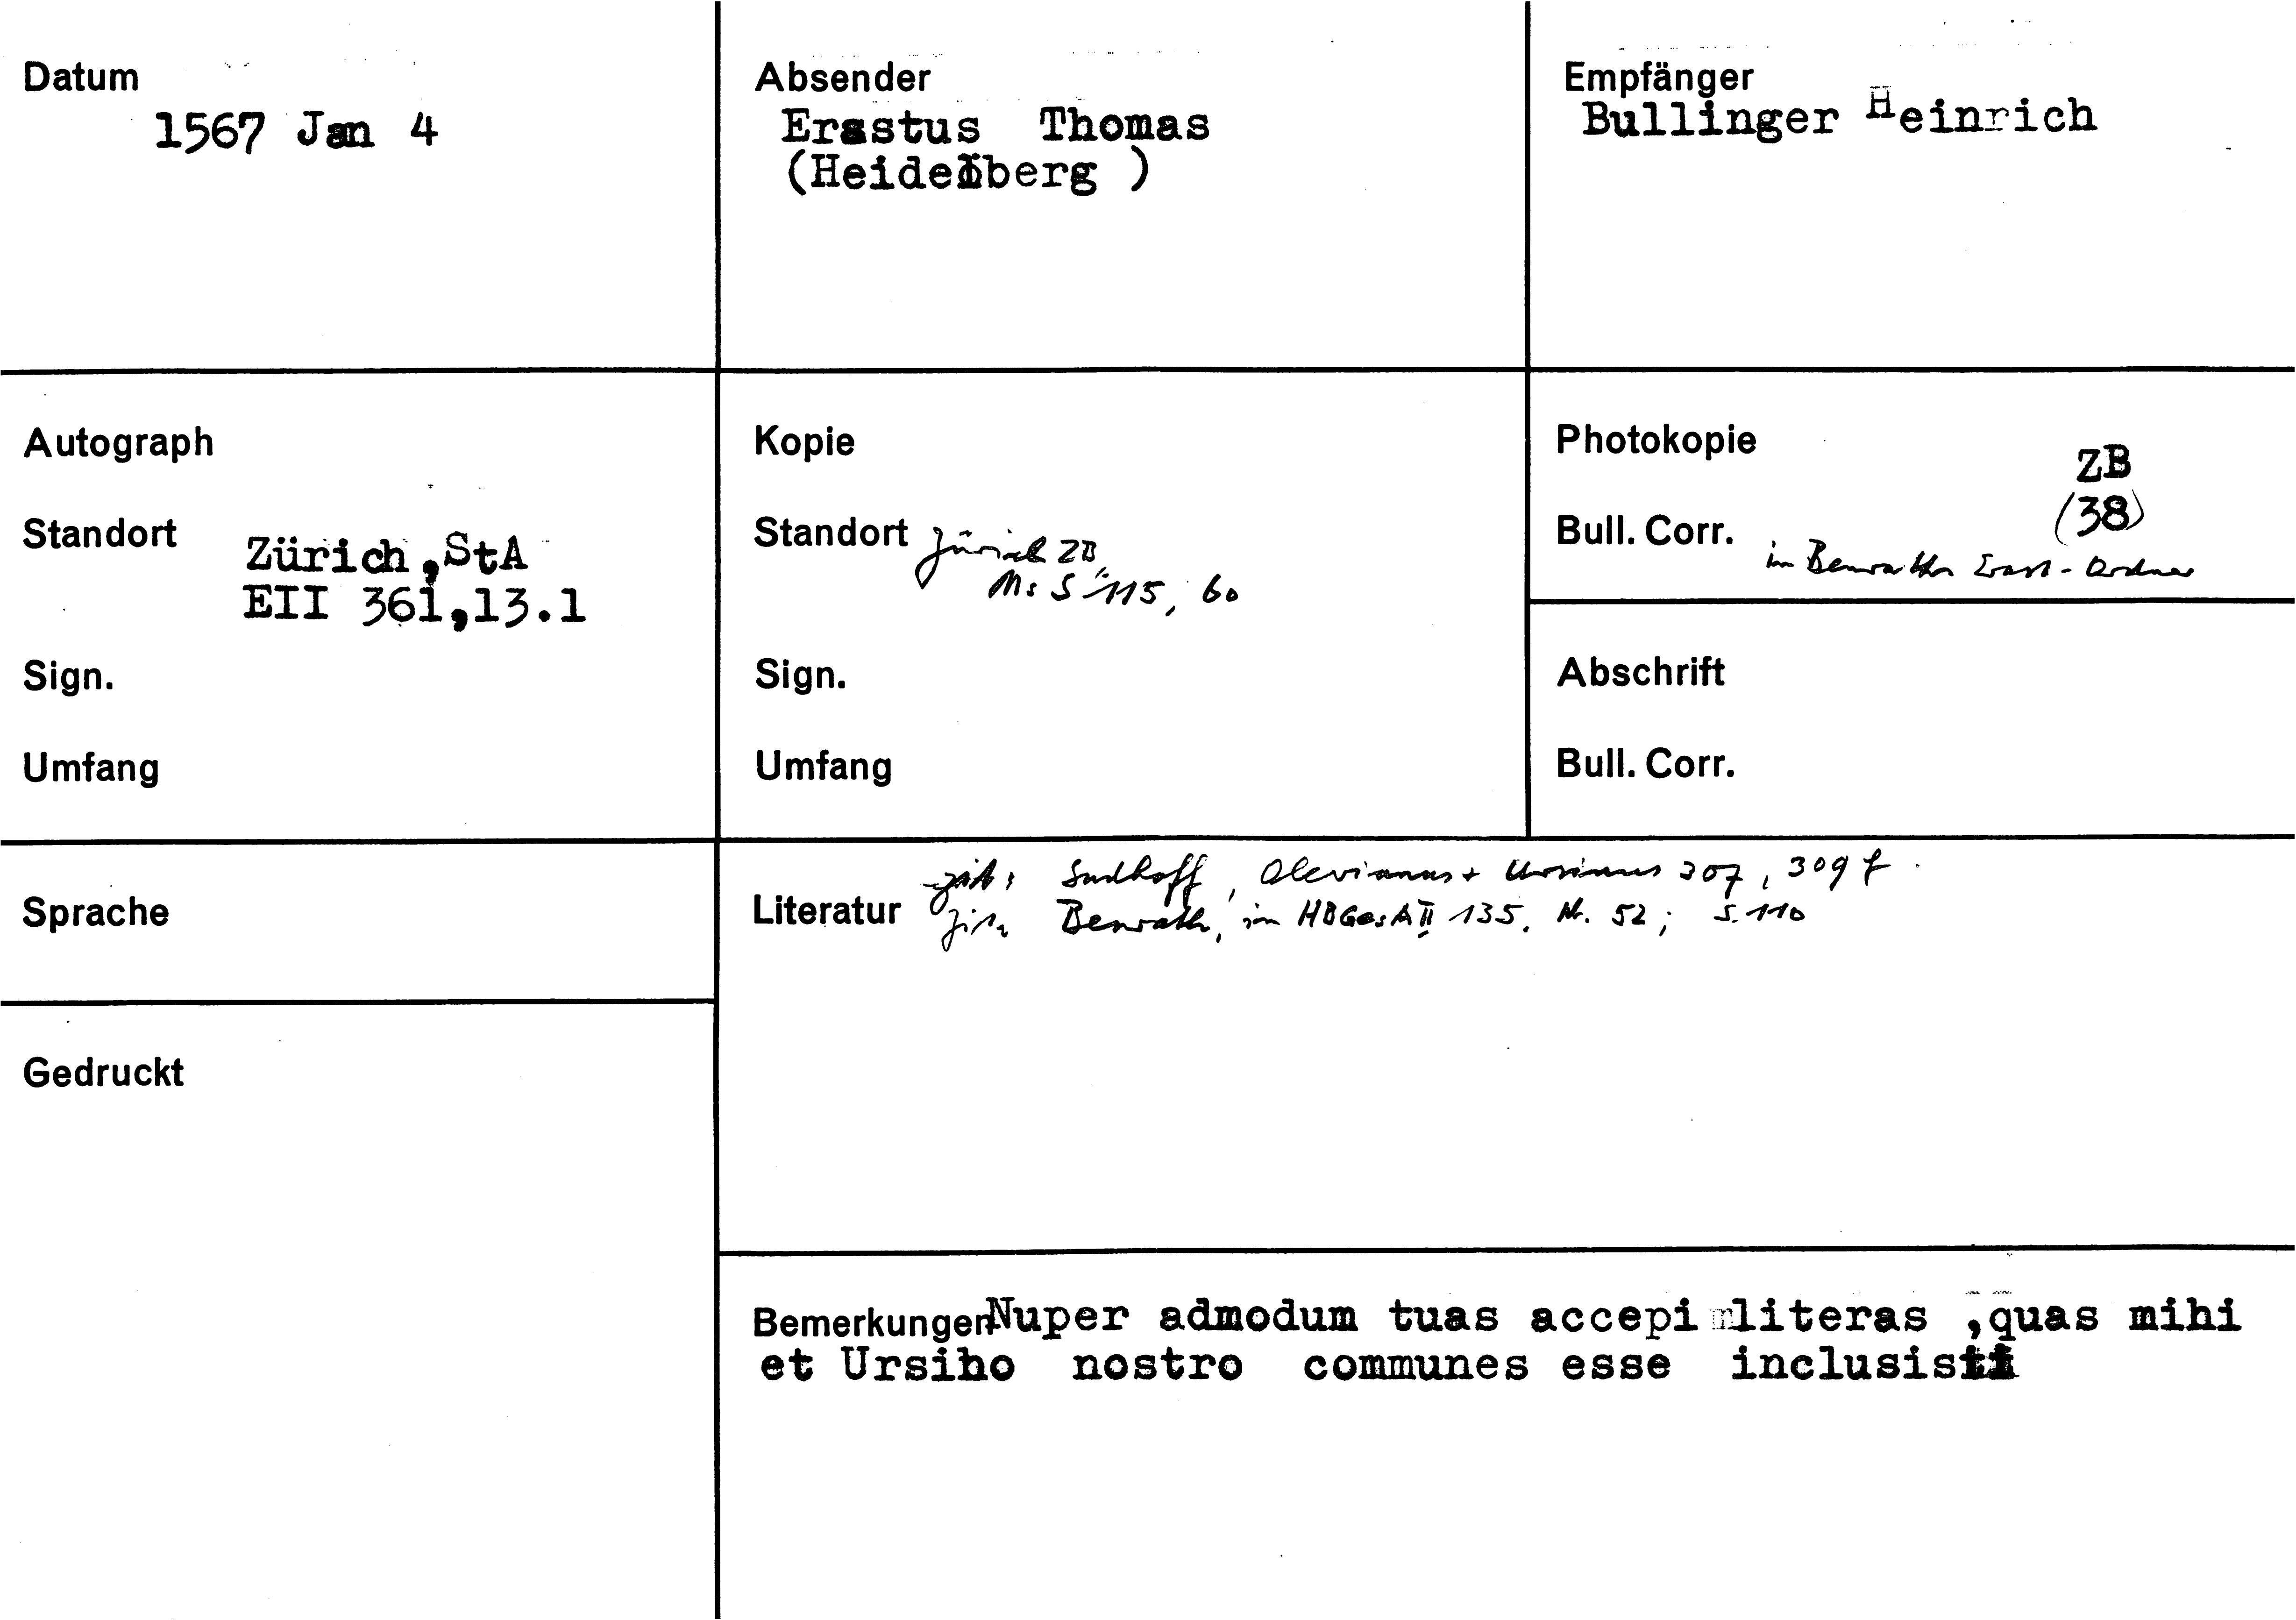 Datum
1567 Jan 4
Absender
Erastus Thomas
(Heidelberg )
Empfänger
Bullinger Heinrich
Autograph
Standort
Zürich,StA
EII 361,13.1
Sign.
Umfang
Kopie
Standort Zürich ZB,
Ms S 115, 60
Sign.
Umfang
Photokopie
ZB
Bull. Corr. (38)
im Benraths Erast-Ordner
Abschrift
Bull. Corr.
Sprache
Gedruckt
zit: Sudhoff, Olevianus + Ursinus 307, 309 f.
Literatur zit. Benrath, in HBGesA II 135, Nr. 52; S. 110
Bemerkungen Nuper admodum tuas accepi literas ,quas mihi
et Ursiho nostro communes esse inclusisti